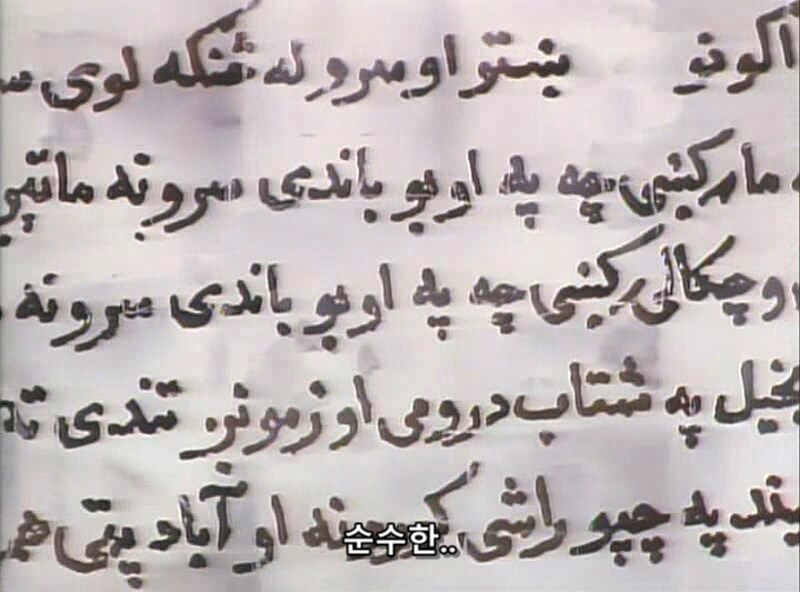 اکوتو ښستو او سرو له څنګه لوی
مارکښی چه په اوبو باندی سرونه ماتیږ
وچکالی رکښی چه په اوبو باندی سرونه
بخیل په شتاب درومی او زمونږ تندی ته
په چپو راشی او آباد پتی هم
순수한..